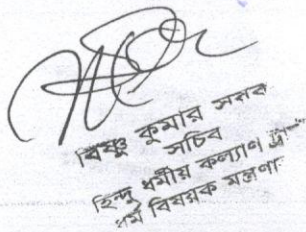 বিষ্ণু কুমার সরকার
সচিব
হিন্দু ধর্মীয় কল্যাণ ট্রা
ধর্ম বিষয়ক মন্ত্রণা